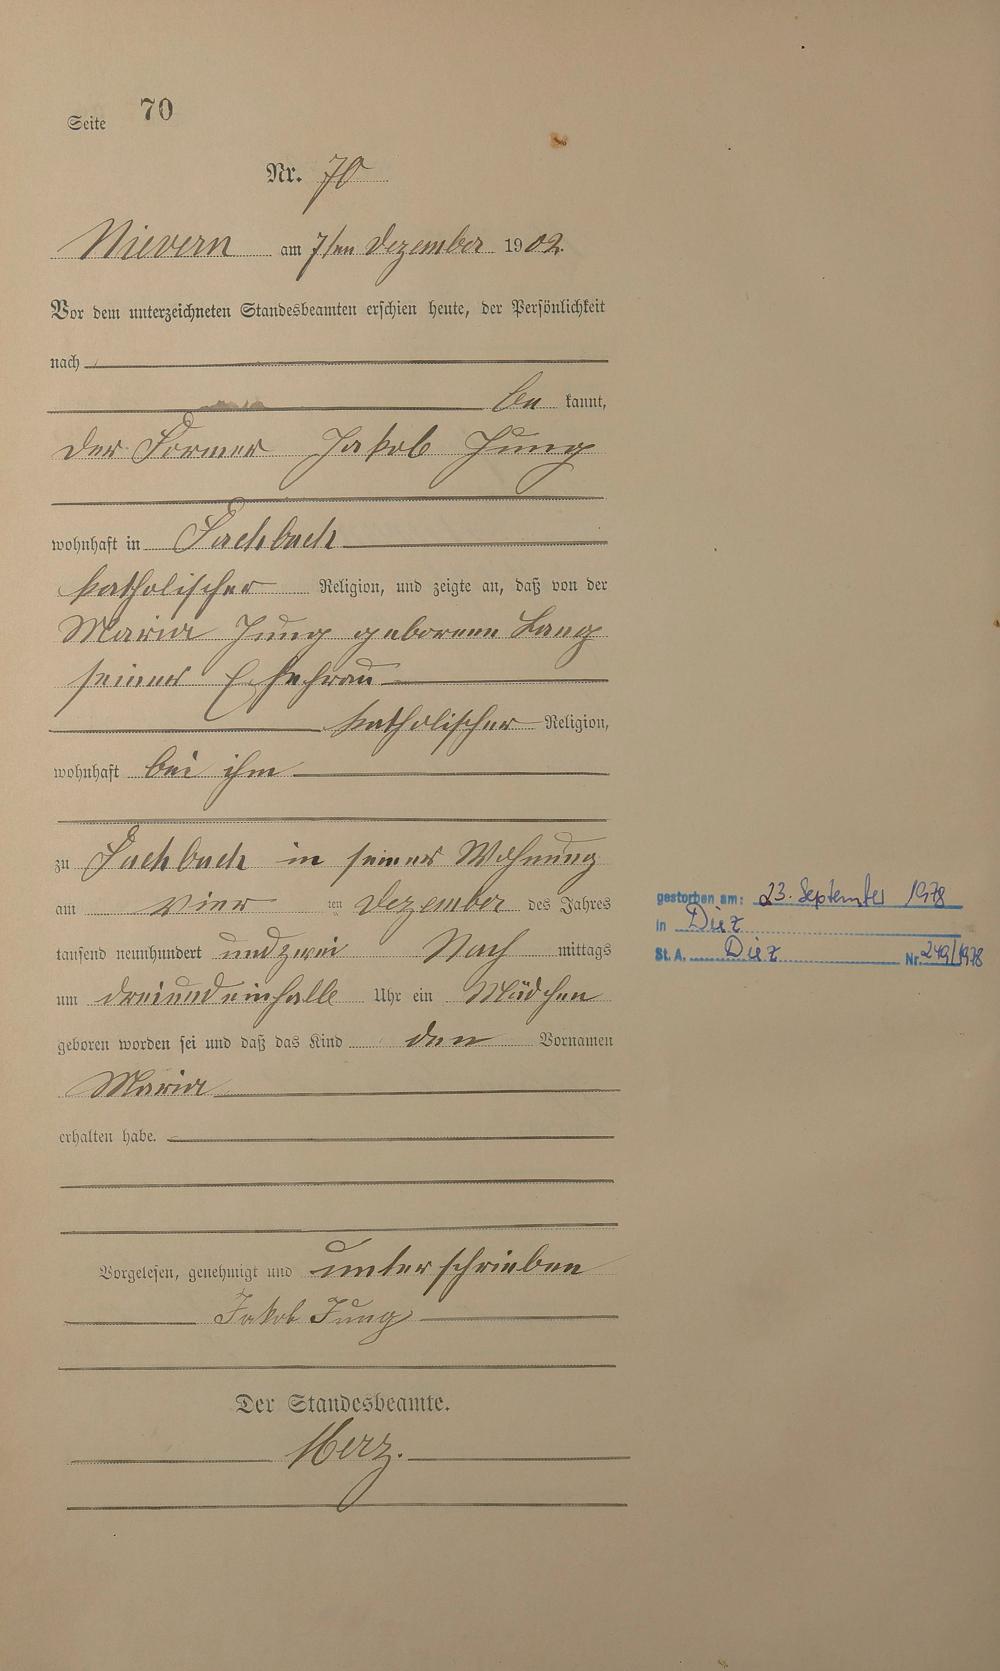 Seite 70
Nr. 70
Nievern am 7ten Dezember 1902.
Vor dem unterzeichneten Standesbeamten erschien heute, der Persönlichkeit
nach
be kannt,
der Former Jakob Jung
wohnhaft in Fachbach
katholischer Religion, und zeigte an, daß von der
Maria Jung geborene Lang
seiner Ehefrau
katholischer Religion,
wohnhaft bei ihm
zu Fachbach in seiner Wohnung
am vier ten Dezember des Jahres
tausend neunhundert und zwei Nach mittags
um drei und ein halb Uhr ein Mädchen
geboren worden sei und daß das Kind den Vornamen
Maria
erhalten habe.
Vorgelesen, genehmigt und unterschrieben
Jakob Jung
Der Standesbeamte.
Herz.
gestorben am: 23. September 1978
in Diez
St. A. Diez Nr. 249/1978